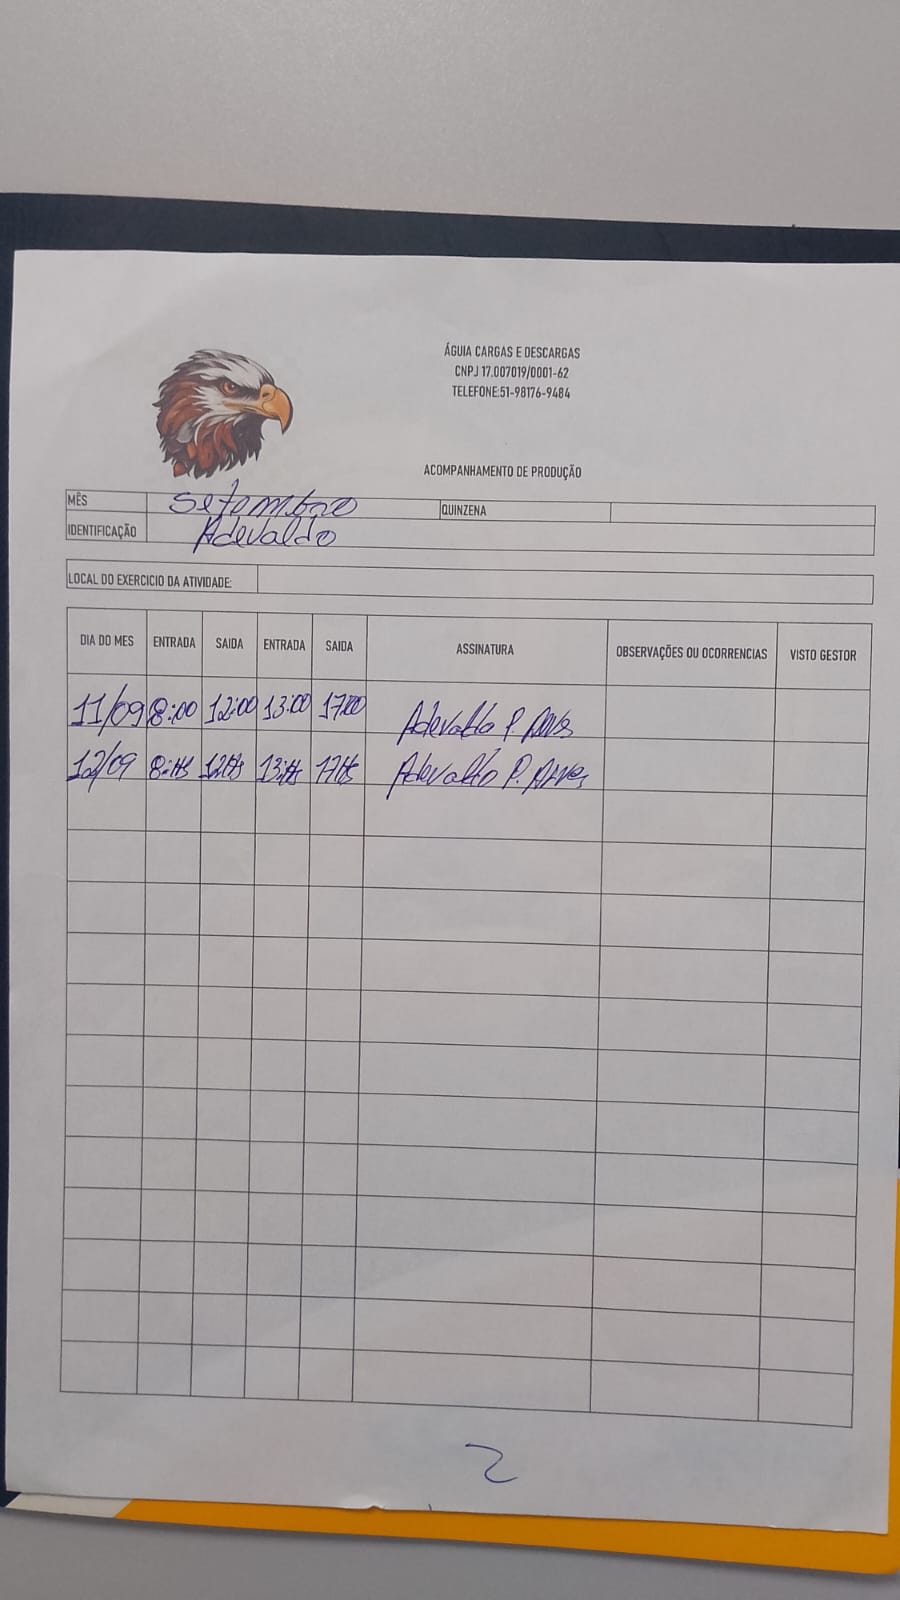 ÁGUIA CARGAS E DESCARGAS
CNPJ 17.007019/0001-62
TELEFONE:51-98176-9484
ACOMPANHAMENTO DE PRODUÇÃO
MÊS Setembro QUINZENA
IDENTIFICAÇÃO Adevaldo
LOCAL DO EXERCICIO DA ATIVIDADE:
DIA DO MES ENTRADA SAIDA ENTRADA SAIDA ASSINATURA OBSERVAÇÕES OU OCORRENCIAS VISTO GESTOR
11/09 8:00 12:00 13:00 17:00 Adevaldo P. Alves
12/09 8:Hs 12Hs 13:Hs 17Hs Adevaldo P. Alves
2